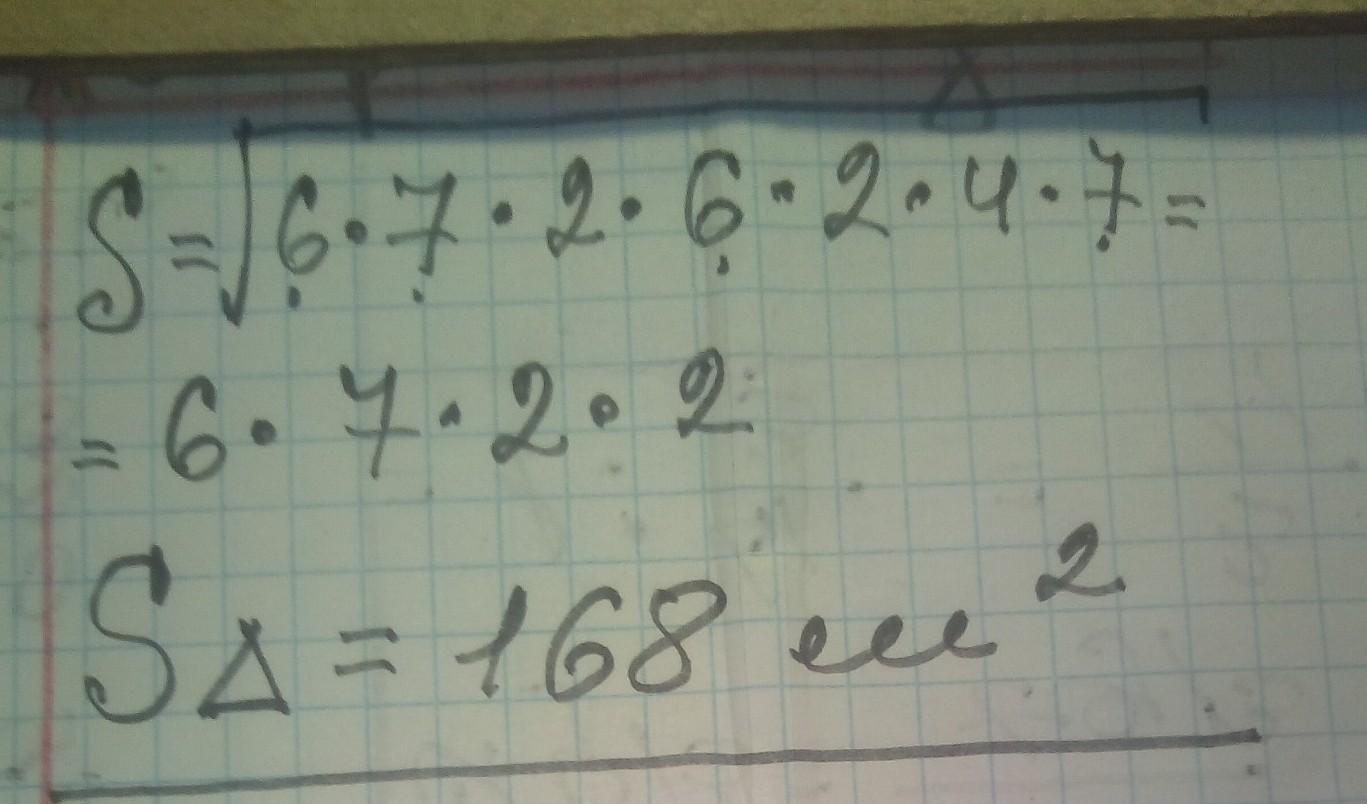 S = √6 · 7 · 2 · 6 · 2 · 4 · 7 =
= 6 · 7 · 2 · 2
S△ = 168 см²